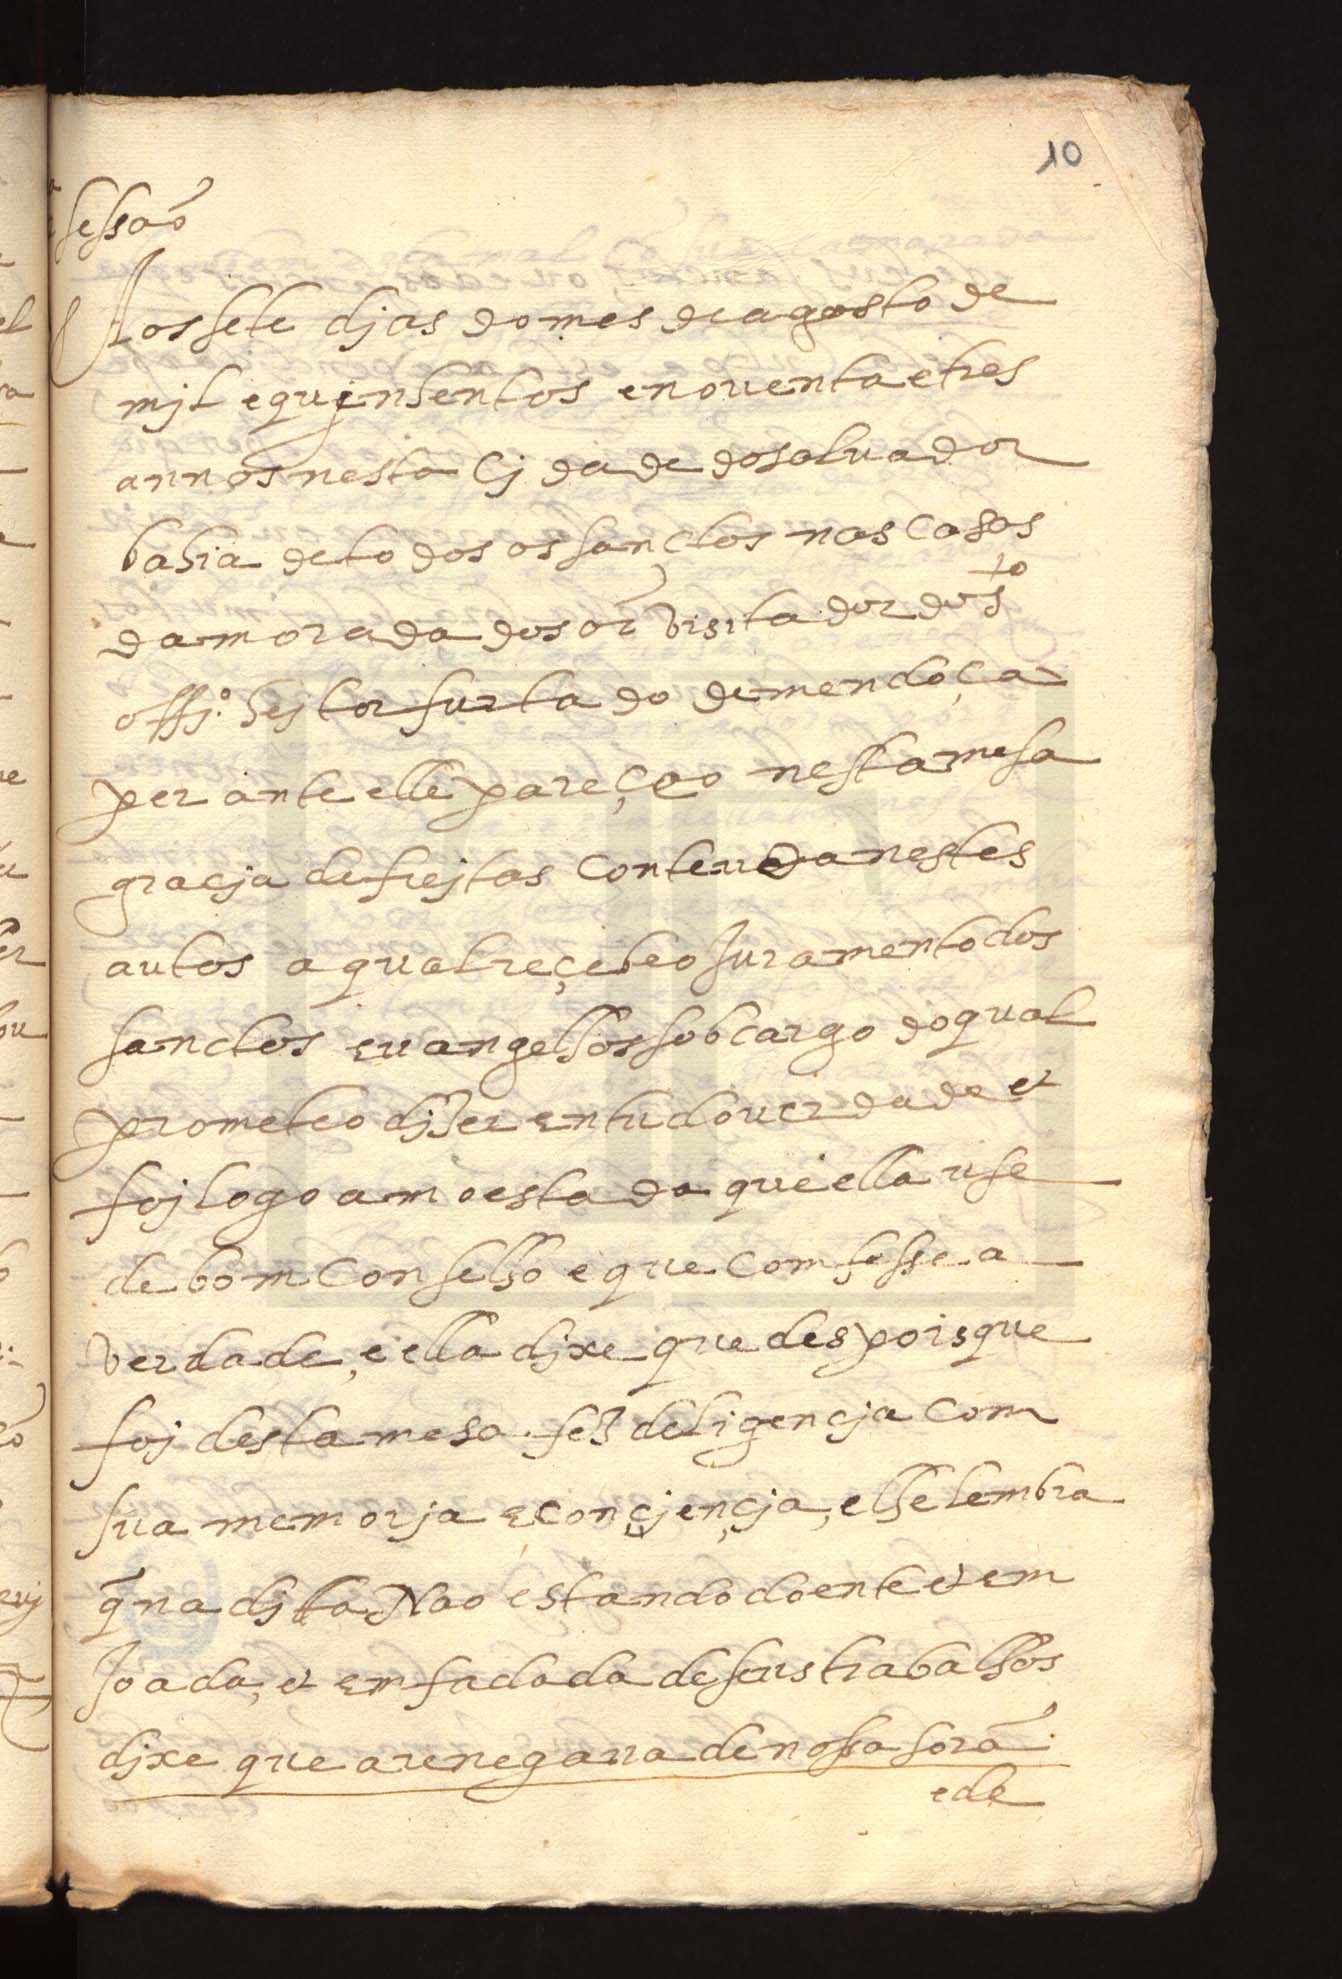 10
sessaõ
Aos sete djas do mes de agosto de
mjl e qujnhentos e noventa e tres
annos nesta Cjdade do salvador
bahia de todos os sanctos nas Casas
da morada do sor̃ visitador do sto
offjº. hejtor furtado de mendoça
perante elle pareçeo nesta mesa
gracja de frejtas Conteuda nestes
autos a qual reçebeo Juramento dos
sanctos evangelhos sob cargo do qual
prometeo djzer en tudo verdade et
foj logo amoestada que ella use
de bom Conselho e que Comfesse a
verdade, e ella djxe que despois que
foj desta mesa fez deligencja Com
sua memorja e conçjençja, e lhe lembra
q̃ na djta Nao estando doente et em
Joada, et emfadada de seus trabalhos
djxe que arenegava de nossa sorã
e de